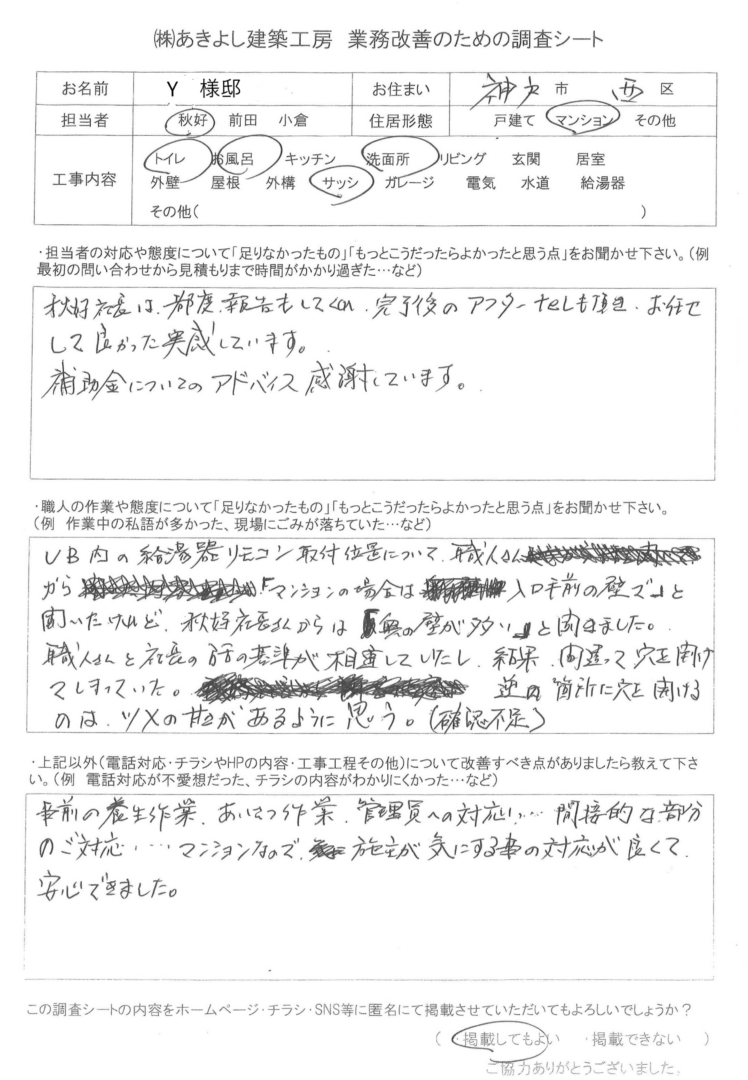 ㈱あきよし建築工房 業務改善のための調査シート
お名前 Y 様邸 お住まい 神戸 市 西 区
担当者 秋好 前田 小倉 住居形態 戸建て マンション その他
工事内容 トイレ お風呂 キッチン 洗面所 リビング 玄関 居室
外壁 屋根 外構 サッシ ガレージ 電気 水道 給湯器
その他( )
・担当者の対応や態度について「足りなかったもの」「もっとこうだったらよかったと思う点」をお聞かせ下さい。(例
最初の問い合わせから見積もりまで時間がかかり過ぎた…など)
秋好社長は、都度、報告もしてくれ、完了後のアフターTELも頂き、お任せ
して良かった実感しています。
補助金についてのアドバイス感謝しています。
・職人の作業や態度について「足りなかったもの」「もっとこうだったらよかったと思う点」をお聞かせ下さい。
(例 作業中の私語が多かった、現場にごみが落ちていた…など)
UB内の給湯器リモコン取付位置について、職人さん
から「マンションの場合は入口手前の壁ズ」と
聞いたけれど、秋好社長さんからは「奥の壁が多い」と聞きました。
職人さんと社長の話の基準が相違していたし、結果、間違って穴を開け
てしまっていた。逆の箇所に穴を開ける
のは、ツメの甘さがあるように思う。(確認不足)
・上記以外(電話対応・チラシやHPの内容・工事工程その他)について改善すべき点がありましたら教えて下さ
い。(例 電話対応が不愛想だった、チラシの内容がわかりにくかった…など)
事前の養生作業、あいさつ作業、管理員への対応い… 間接的な部分
のご対応…マンションなので、施主が気にする事の対応が良くて、
安心できました。
この調査シートの内容をホームページ・チラシ・SNS等に匿名にて掲載させていただいてもよろしいでしょうか？
( ・掲載してもよい ・掲載できない )
ご協力ありがとうございました。